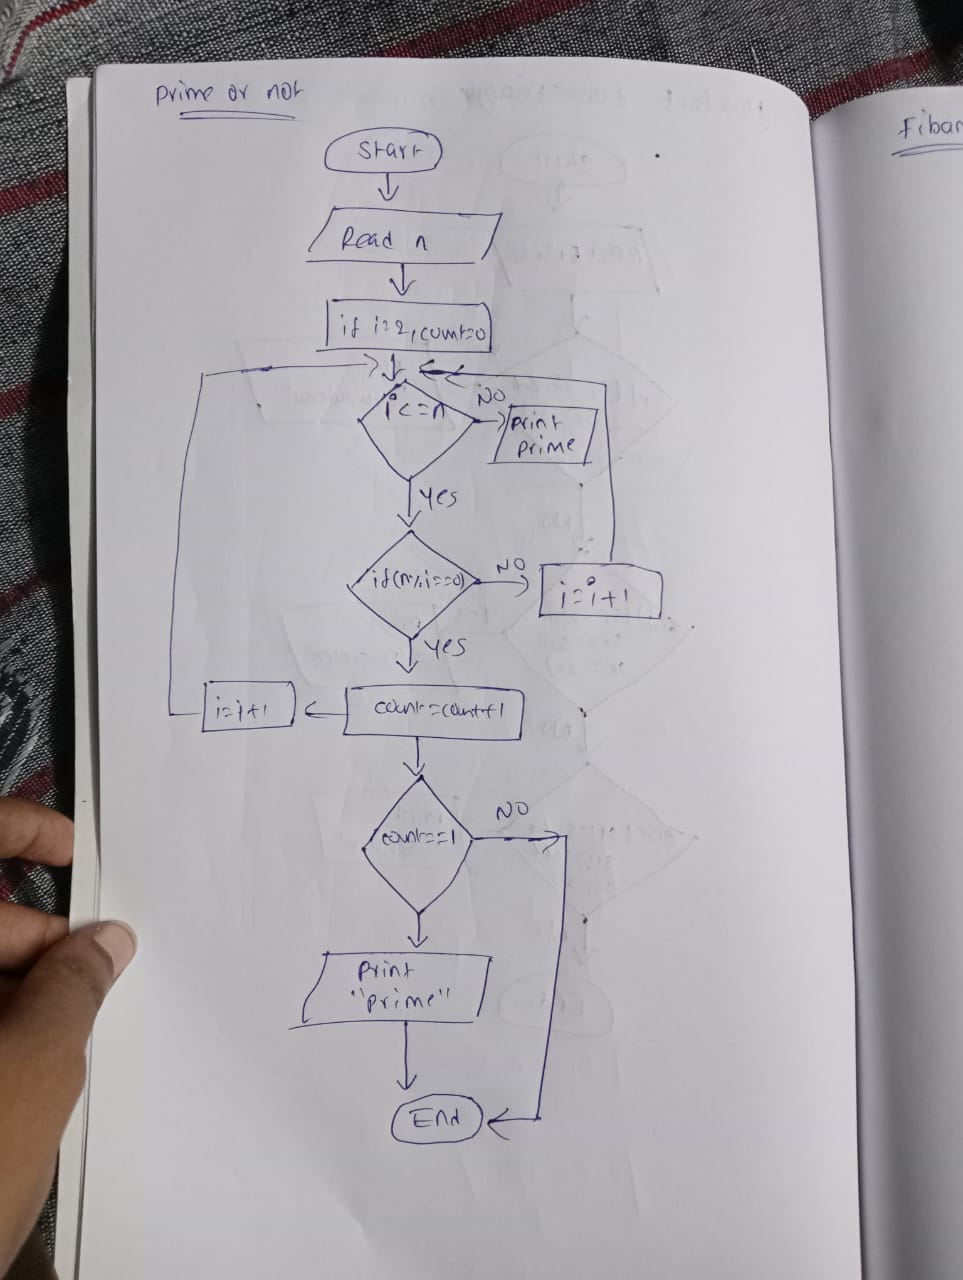 Prime or not
Fibar
Start
Read n
if i=2, count=0
i<=n
NO
print
prime
yes
if(n%i==0)
NO
i=i+1
yes
i=i+1
count=count+1
count==1
NO
print
"prime"
End